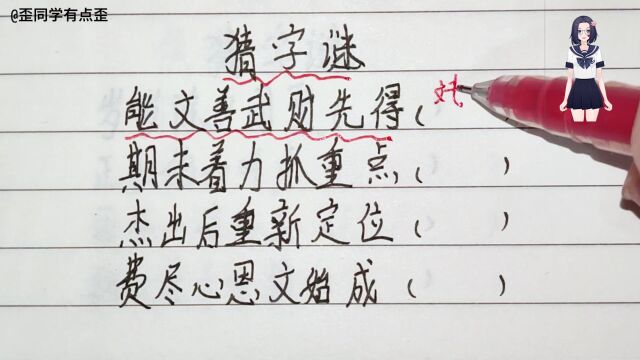 @歪同学有点歪
猜字谜
能文善武财先得(
期末着力抓重点( )
杰出后重新定位( )
费尽心思文始成( )